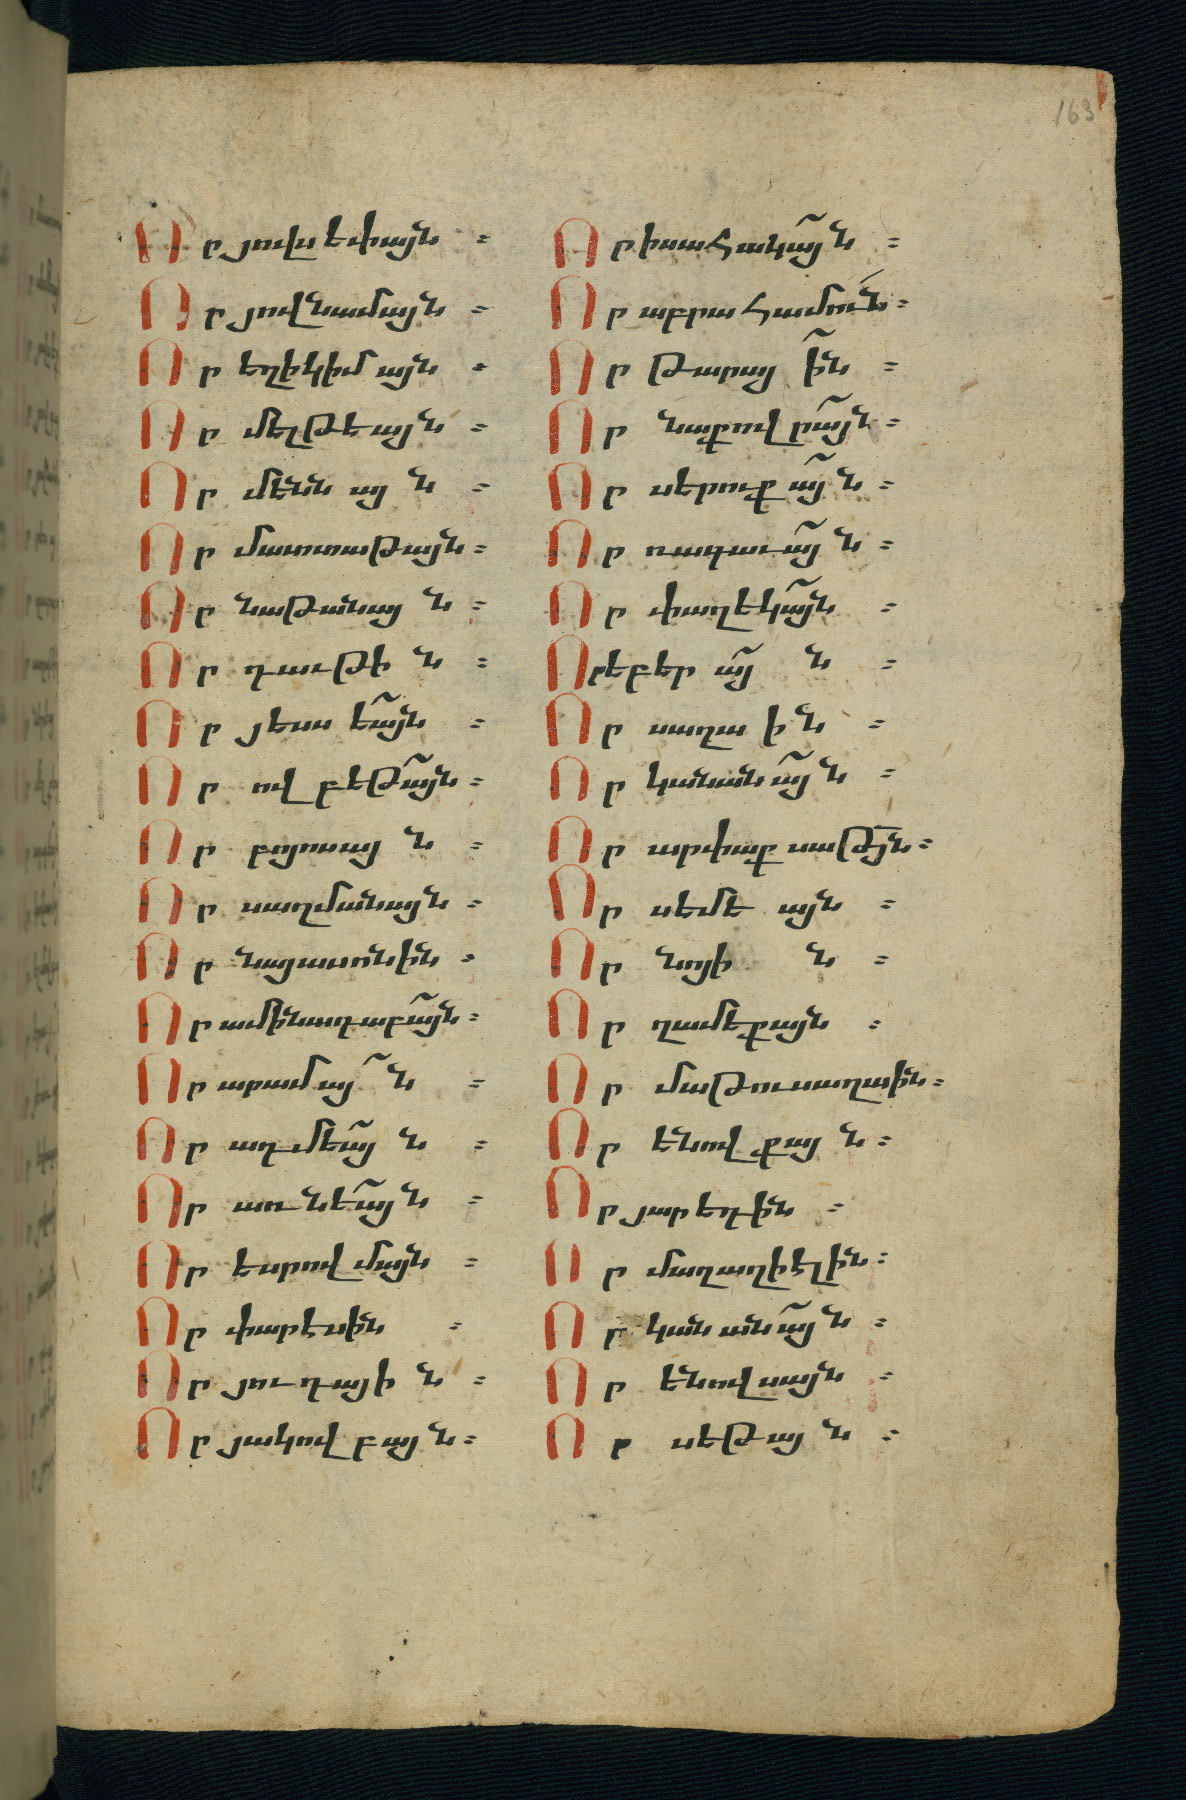 163
Որ յովսեփայն ։
Որ յովնամայն ։
Որ եղիկիմ այն ։
Որ մելթեայն ։
Որ մենն այ ն ։
Որ մատտաթայն ։
Որ նաթանայ ն ։
Որ դաւթի ն ։
Որ յեսս եայն ։
Որ ովբեթայն ։
Որ բոյոսայ ն ։
Որ սաղմանայն ։
Որ նայասոնին ։
Որ ամինադաբայն ։
Որ արամայ ն ։
Որ ադմեայ ն ։
Որ առնեայն ։
Որ եսրովմայն ։
Որ փարէսին ։
Որ յուդայի ն ։
Որ յակովբայն ։
Որ իսահակայն ։
Որ աբրահամուն ։
Որ թարայ ին ։
Որ նաքովրայն ։
Որ սերուքայն ։
Որ ռագաւայն ։
Որ փաղեկայն ։
Որ եբեր այ ն ։
Որ սաղա ին ։
Որ կանանայն ։
Որ արփաքսաթյն ։
Որ սեմե այն ։
Որ նոյի ն ։
Որ ղամեքայն ։
Որ մաթուսաղաին ։
Որ ենովքայ ն ։
Որ յարեդին ։
Որ մաղաղիէլին ։
Որ կանանայն ։
Որ ենովսայն ։
Որ սեթայ ն ։